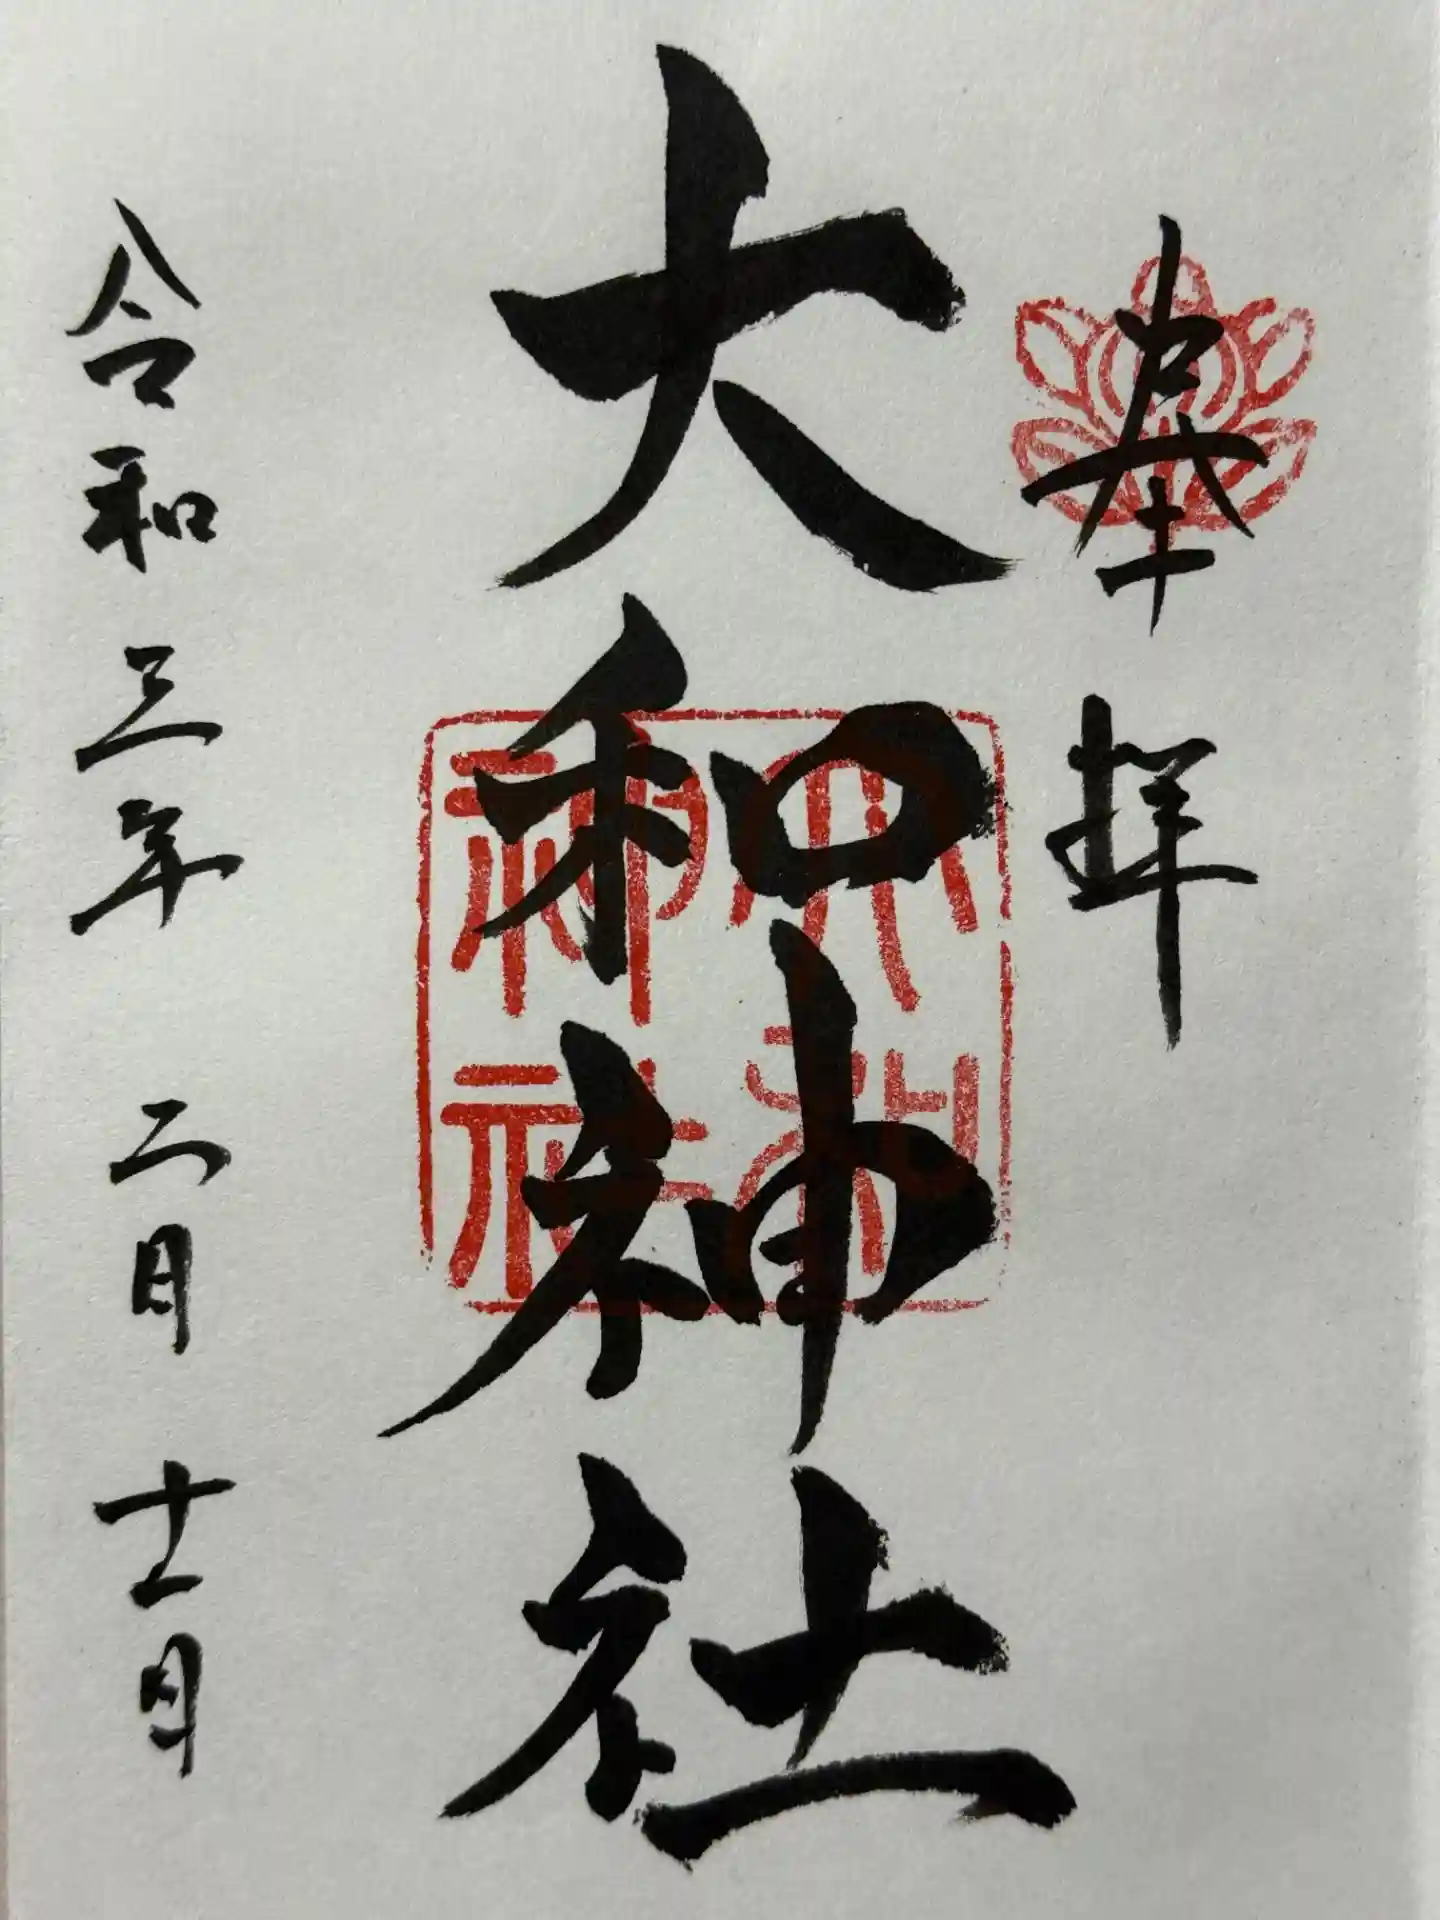 奉拝
大和神社
大和神社
令和三年二月十一日